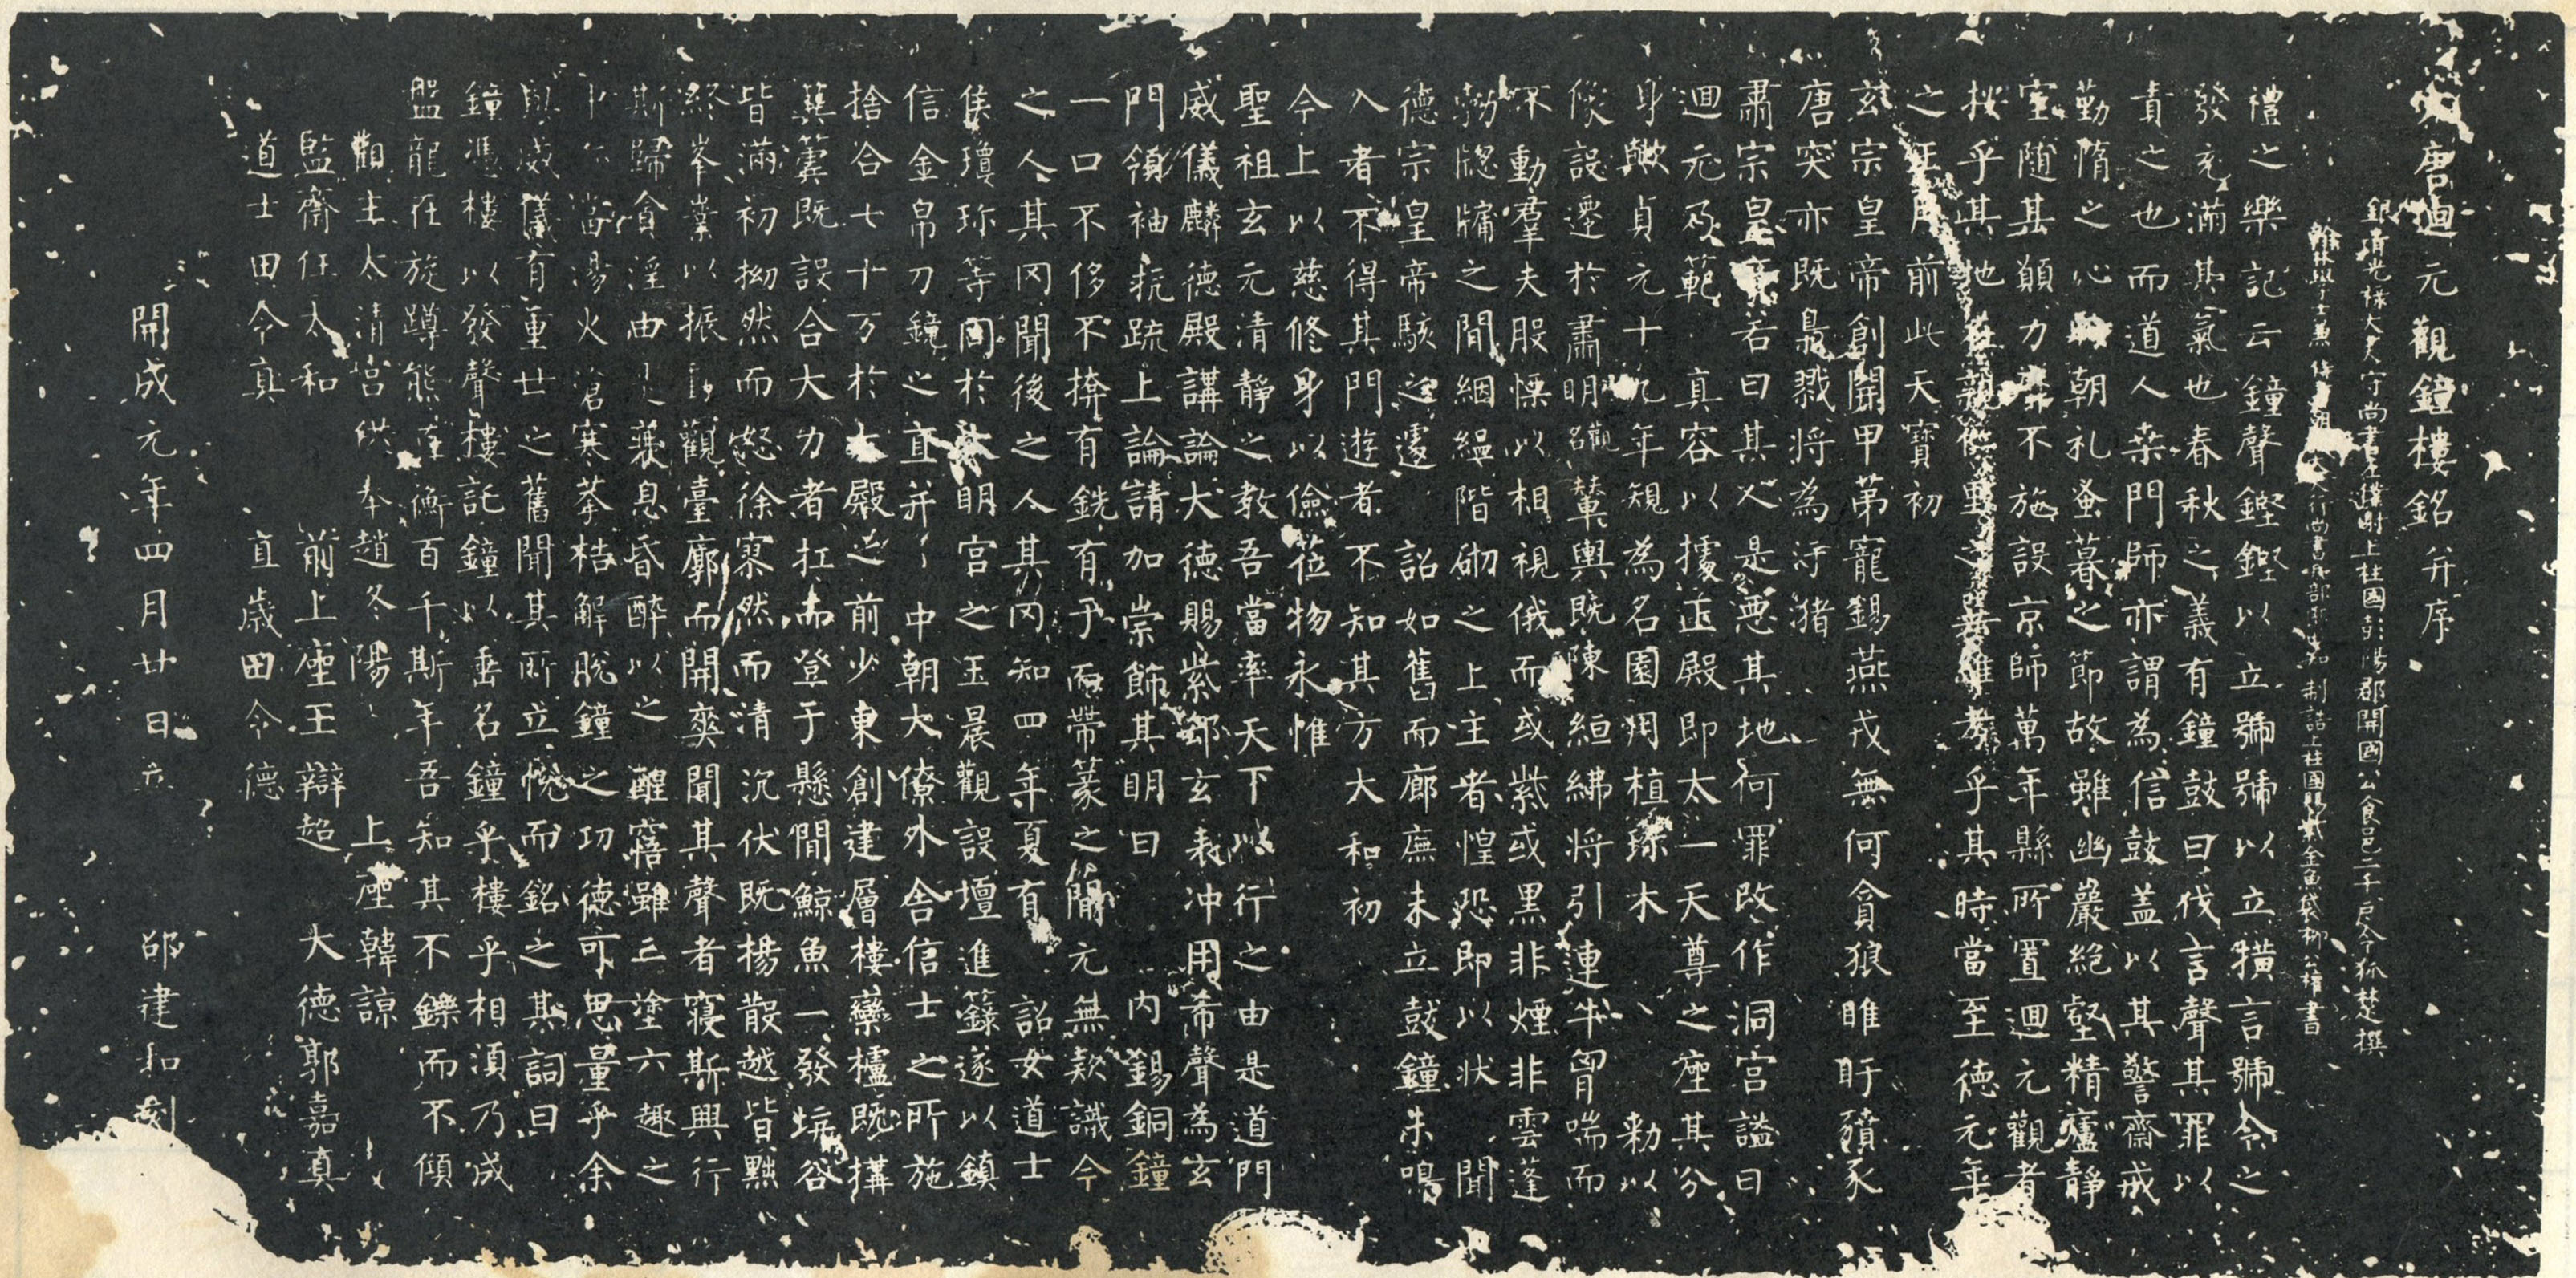 大唐迴元觀鐘樓銘并序
銀青光祿大夫守尚書左僕射上柱國彭陽郡開國公食邑二千戶令狐楚撰
翰林學士兼侍書朝 大夫行尚書兵部郎中知制誥上柱國賜紫金魚袋柳公權書
禮之樂記云鐘聲鏗鏗以立號號以立橫言號令之
發充滿其氣也春秋之義有鐘鼓曰伐言聲其罪以
責之也而道人桒門師亦謂為信鼓盖以其警齋戒
勤惰之心 朝礼蚤暮之節故雖幽嚴絕壑精廬靜
室隨其願力 不施設京師萬年縣所置迴元觀者
桉乎其地在親仁里之 維考乎其時當至德元年
之正月前此天寶初
玄宗皇帝創開甲第寵錫燕戎無何貪狼睢盱豶豕
唐突亦既梟戮將為汙猪
肅宗皇帝若曰其人是惡其地何罪改作洞宮謚曰
迴元乃範 真容以據正殿即太一天尊之座其分
身歟貞元十九年規為名園用植珎木 勑以
像設遷於肅明觀名輦輿既陳絙紼將引連牛胷喘而
不動羣夫股慄以相視俄而或紫或黑非煙非雲蓬
勃牕牖之間絪縕階砌之上主者惶恐即以狀聞
德宗皇帝駭之遽 詔如舊而廊廡未立鼓鐘未鳴
入者不得其門遊者不知其方大和初
今上以慈修身以儉莅物永惟
聖祖玄元清静之教吾當率天下以行之由是道門
威儀麟德殿講論大德賜紫郄玄表冲用希聲為玄
門領袖抗疏上論請加崇飾其明日 内錫銅鐘
一口不侈不撓有銑有于而帶篆之間元無欵識今
之人其罔聞後之人其罔知四年夏有 詔女道士
侯瓊珎等同於大明宫之玉晨觀設壇進籙遂以鎮
信金帛刀鏡之直并 中朝大僚外舍信士之所施
捨合七十万於大殿之前少東創建層樓欒櫨既搆
簨簴既設合大力者扛而登于懸間鯨魚一發坑谷
皆滿初拗然而怒徐寥然而清沉伏既楊散越皆黜
終峯業以振 觀臺廓而開爽聞其聲者寢斯興行
斯歸貪淫由之衰息昏醉以之醒寤雖三塗六趣之
中 當湯火滄寒拲梏解脫鐘之功德可思量乎余
與威儀有重世之舊聞其所立悅而銘之其詞曰
鐘憑樓以發聲樓託鐘以垂名鐘乎樓乎相須乃成
盤龍在旋蹲熊在衡百千斯年吾知其不鑠而不傾
觀主太清宫供奉趙冬陽 上座韓諒
監齋任太和 前上座王辯超 大德郭嘉真
道士田令真 直歲田令德
開成元年四月廿日立 邵建和刻